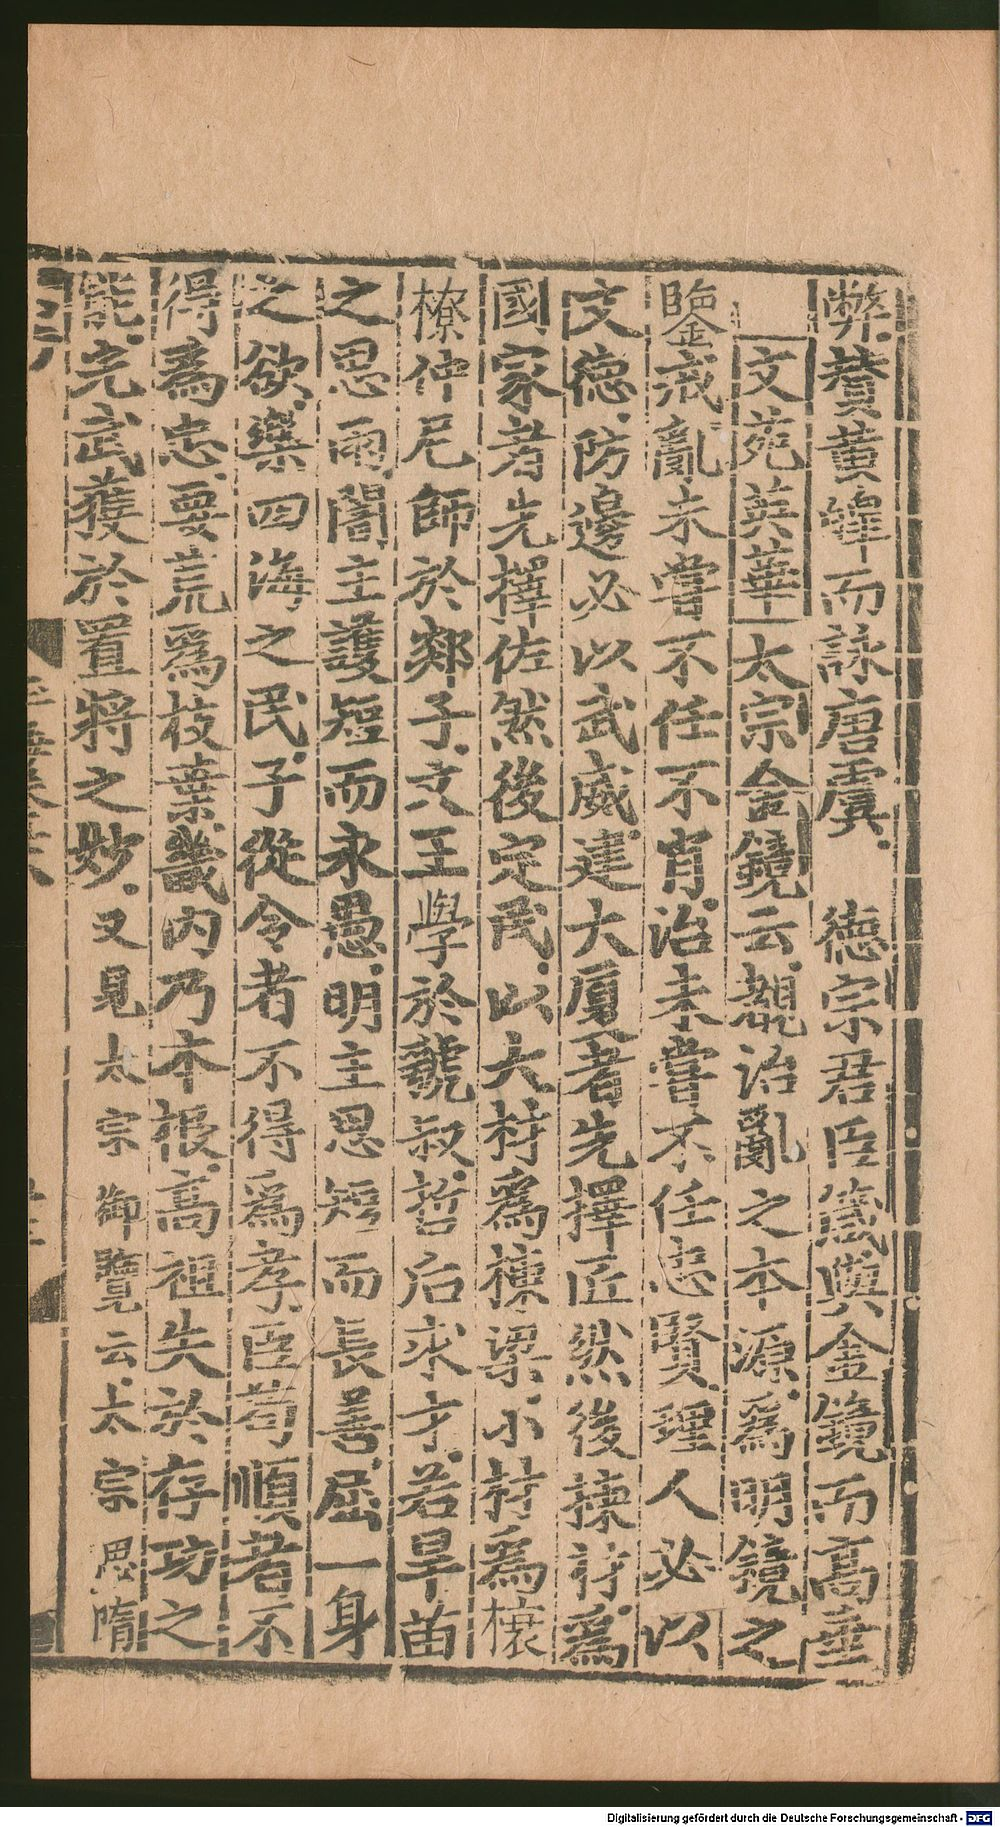 弊贊黄鐘而詠唐虞 德宗君臣箴與金鏡而高垂
文苑英華太宗金鏡云覩治亂之本源爲明鏡之
鑒戒亂未嘗不任不肖治未嘗不任忠賢理人必以
文德防邊必以武威建大厦者先擇匠然後揀材爲
國家者先擇佐然後定民以大材爲棟梁小材爲榱
橑仲尼師於郯子文王學於虢叔哲后求才若旱苗
之思雨闇主護短而永愚明主思短而長善屈一身
之欲樂四海之民子從令者不得爲孝臣苟順者不
得爲忠要荒爲枝葉畿内乃本根高祖失於存功之
能光武獲於置將之妙又見太宗御覽云太宗思隋
Digitalisierung gefördert durch die Deutsche Forschungsgemeinschaft - DFG